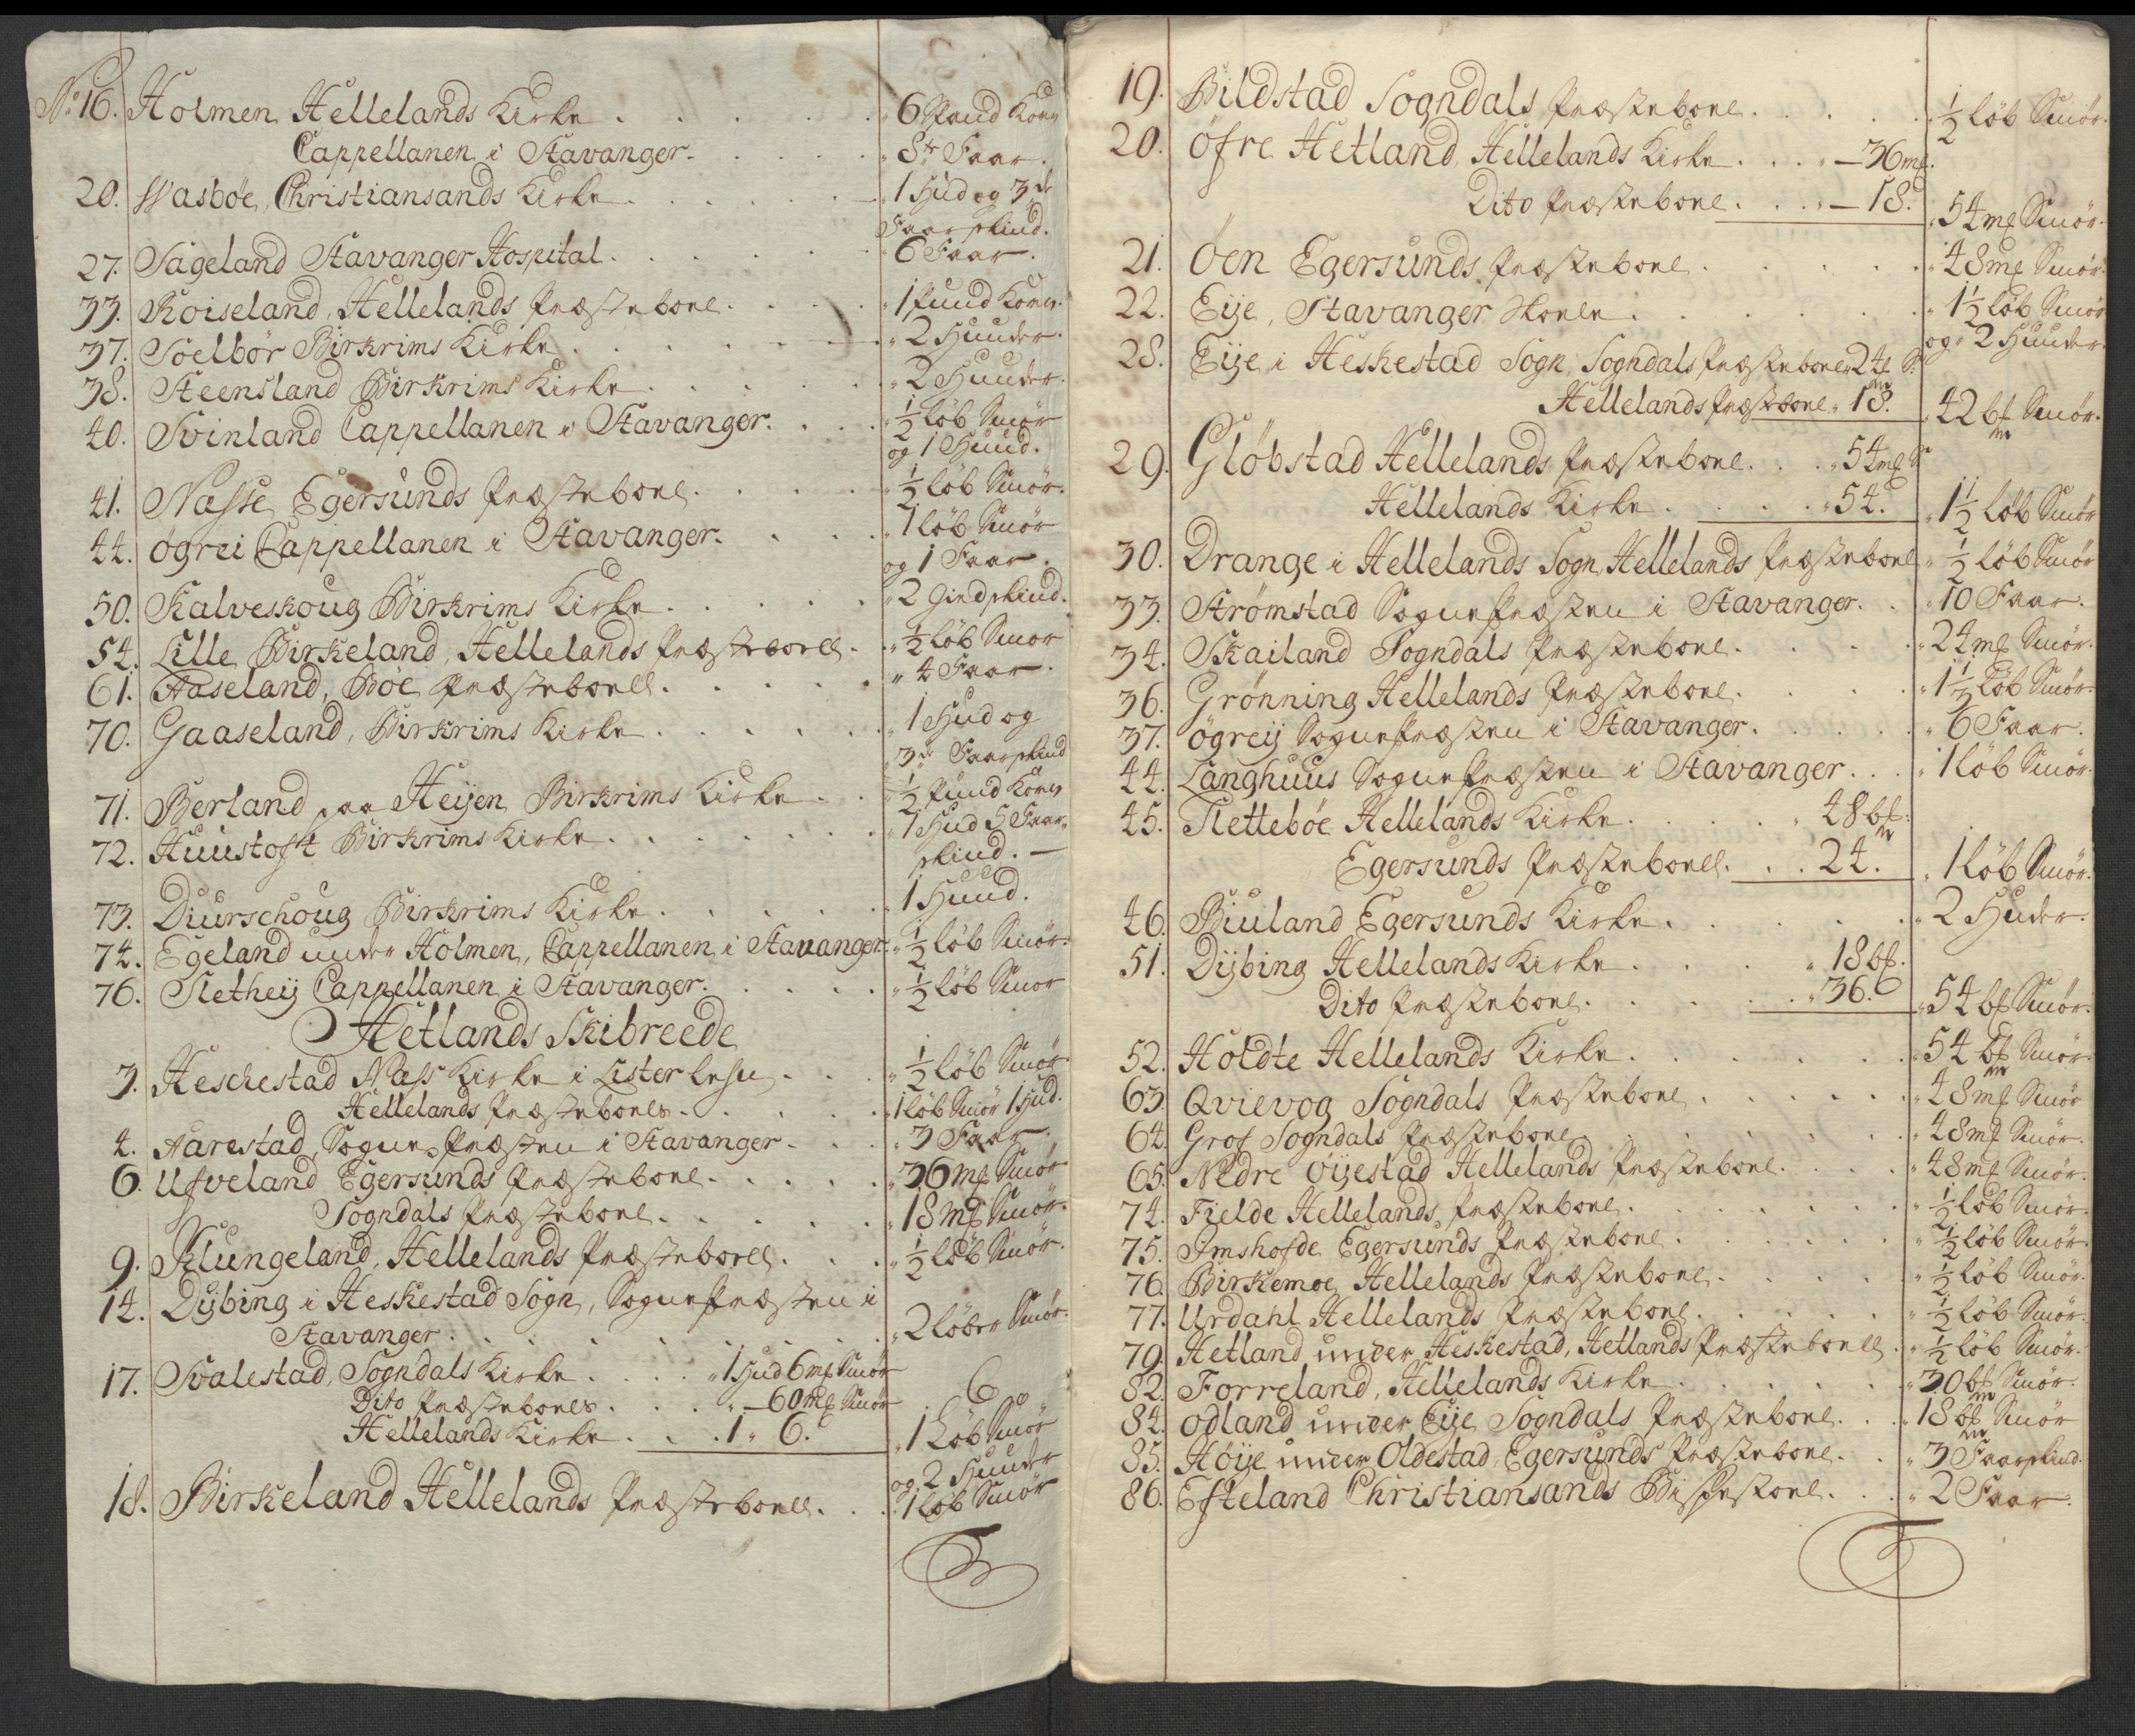 No 16. Holmen, Hellelands Kirke . . . . . 6 Pund Korn
Cappellanen i Stavanger. . . . . 8te Faar.
20. Wasbøe, Christiansands Kirke . . . . . 1 Hud og 3de
Faarskind.
27. Sageland Stavanger Hospital . . . . . 6 Faar.
33. Roiseland, Hellelands Præstebord . . . . 1 Pund Korn.
37. Soelbør Birkrims Kirke . . . . . 2 Huuder.
38. Steensland Birkrims Kirke . . . . . 2 Huuder.
40. Svinland Cappellanen i Stavanger. . . . ½ løb Smør
og 1 Huud.
41. Nasse, Egersunds Præstebord . . . . . ½ løb Smør.
44. Øgrei Cappellanen i Stavanger. . . . 1 løb Smør
og 1 Faar.
50. Kalveskoug Birkrims Kirke . . . . . 2 Giedskind.
54. Lille Birkeland, Hellelands Præstebord . ½ løb Smør
61. Aaseland, Bøe Præstebord . . . . . 4 Faar.
70. Gaaseland, Birkrims Kirke . . . . . 1 Hud og
3de Faarskind
71. Berland paa Heijen Birkrims Kirke . . ½ Pund Korn
72. Huustoft Birkrims Kirke . . . . . 1 Hud 5 Faar-
skind. —
73. Diurschoug Birkrims Kirke . . . . . 1 Huud.
74. Egeland under Holmen, Cappellanen i Stavanger. ½ løb Smør.
76. Sletheij Cappellanen i Stavanger. . . . ½ løb Smør
Hetlands Skibreede
3. Heschestad Næss Kirke i Lister Lehn . . . ½ løb Smør
Hellelands Præstebord . . . . . 1 løb Smør 1 Hud.
4. Aarestad, Sogne Præsten i Stavanger . . . 3 Faar.
6. Ufveland Egersunds Præstebord . . . . . 36 mk Smør
Sogndals Præstebord . . . . . 18 mk Smør.
9. Klungeland, Hellelands Præstebord . . . ½ løb Smør.
14. Dybing i Heskestad Sogn, Sogne Præsten i
Stavanger . . . . . 2 løber Smør.
17. Svalestad, Sogndals Kirke . . . . 1 Hud 6 mk Smør
Dito Præstebord . . . . — 60 mk Smør
Hellelands Kirke . . . 1 " 6. 1 Løb Smør
og 2 Huuder
18. Birkeland Hellelands Præstebord . . . 1 løb Smør
19. Bildstad Sogndals Præstebord . . . . . ½ løb Smør.
20. Øfre Hetland, Hellelands Kirke . . . . — 36 mk.
Dito Præstebord . . . — 18. 54 mk Smør.
21. Øen Egersunds Præstebord . . . . . 48 mk Smør
22. Eije, Stavanger Skole . . . . . 1½ løb Smør
og 2 Huuder.
28. Eije i Heskestad Sogn, Sogndals Præstebord 24 S.
Hellelands Præstebord 18. 42 bk Smør.
29. Gløbstad Hellelands Præstebord . . . 54 mk S
Hellelands Kirke . . . . . 54. 1½ løb Smør
30. Drange i Hellelands Sogn, Hellelands Præstebord ½ løb Smør
33. Strømstad Sogne Præsten i Stavanger. . 10 Faar.
34. Skailand Sogndals Præstebord . . . . 24 mk Smør.
36. Grønning Hellelands Præstebord . . . . 1½ løb Smør.
37. Øgreij Sogne Præsten i Stavanger . . . . 6 Faar.
44. Langhuus Sogne Præsten i Stavanger . . . 1 løb Smør.
45. Slettebøe Hellelands Kirke . . . . . 48 bk.
Egersunds Præstebord . . . 24. 1 løb Smør.
46. Biuland Egersunds Kirke . . . . . 2 Huder.
51. Dybing Hellelands Kirke . . . . 18 bk.
Dito Præstebord . . . . . 36. 54 bk Smør.
52. Holdte Hellelands Kirke . . . . . 54 bk Smør.
63. Qvievog Sogndals Præstebord . . . . . 48 mk Smør
64. Grof Sogndals Præstebord . . . . . 48 mk Smør.
65. Nedre Øijestad Hellelands Præstebord . . . . 48 mk Smør.
74. Fielde Hellelands Præstebord . . . . . ½ løb Smør.
75. Imshofde Egersunds Præstebord . . . . . ½ løb Smør.
76. Birkemoe, Hellelands Præstebord . . . . . ½ løb Smør.
77. Urdahl Hellelands Præstebord . . . . . ½ løb Smør.
79. Hetland under Heskestad, Hetlands Præstebord . ½ løb Smør.
82. Forreland, Hellelands Kirke . . . . . 30 bk Smør.
84. Odland under Eije Sogndals Præstebord . . . 18 bk Smør
85. Høije under Oldestad, Egersunds Præstebord . . 3 Faarskind.
86. Efteland Christiansands Bispestoel . . . 2 Faar.